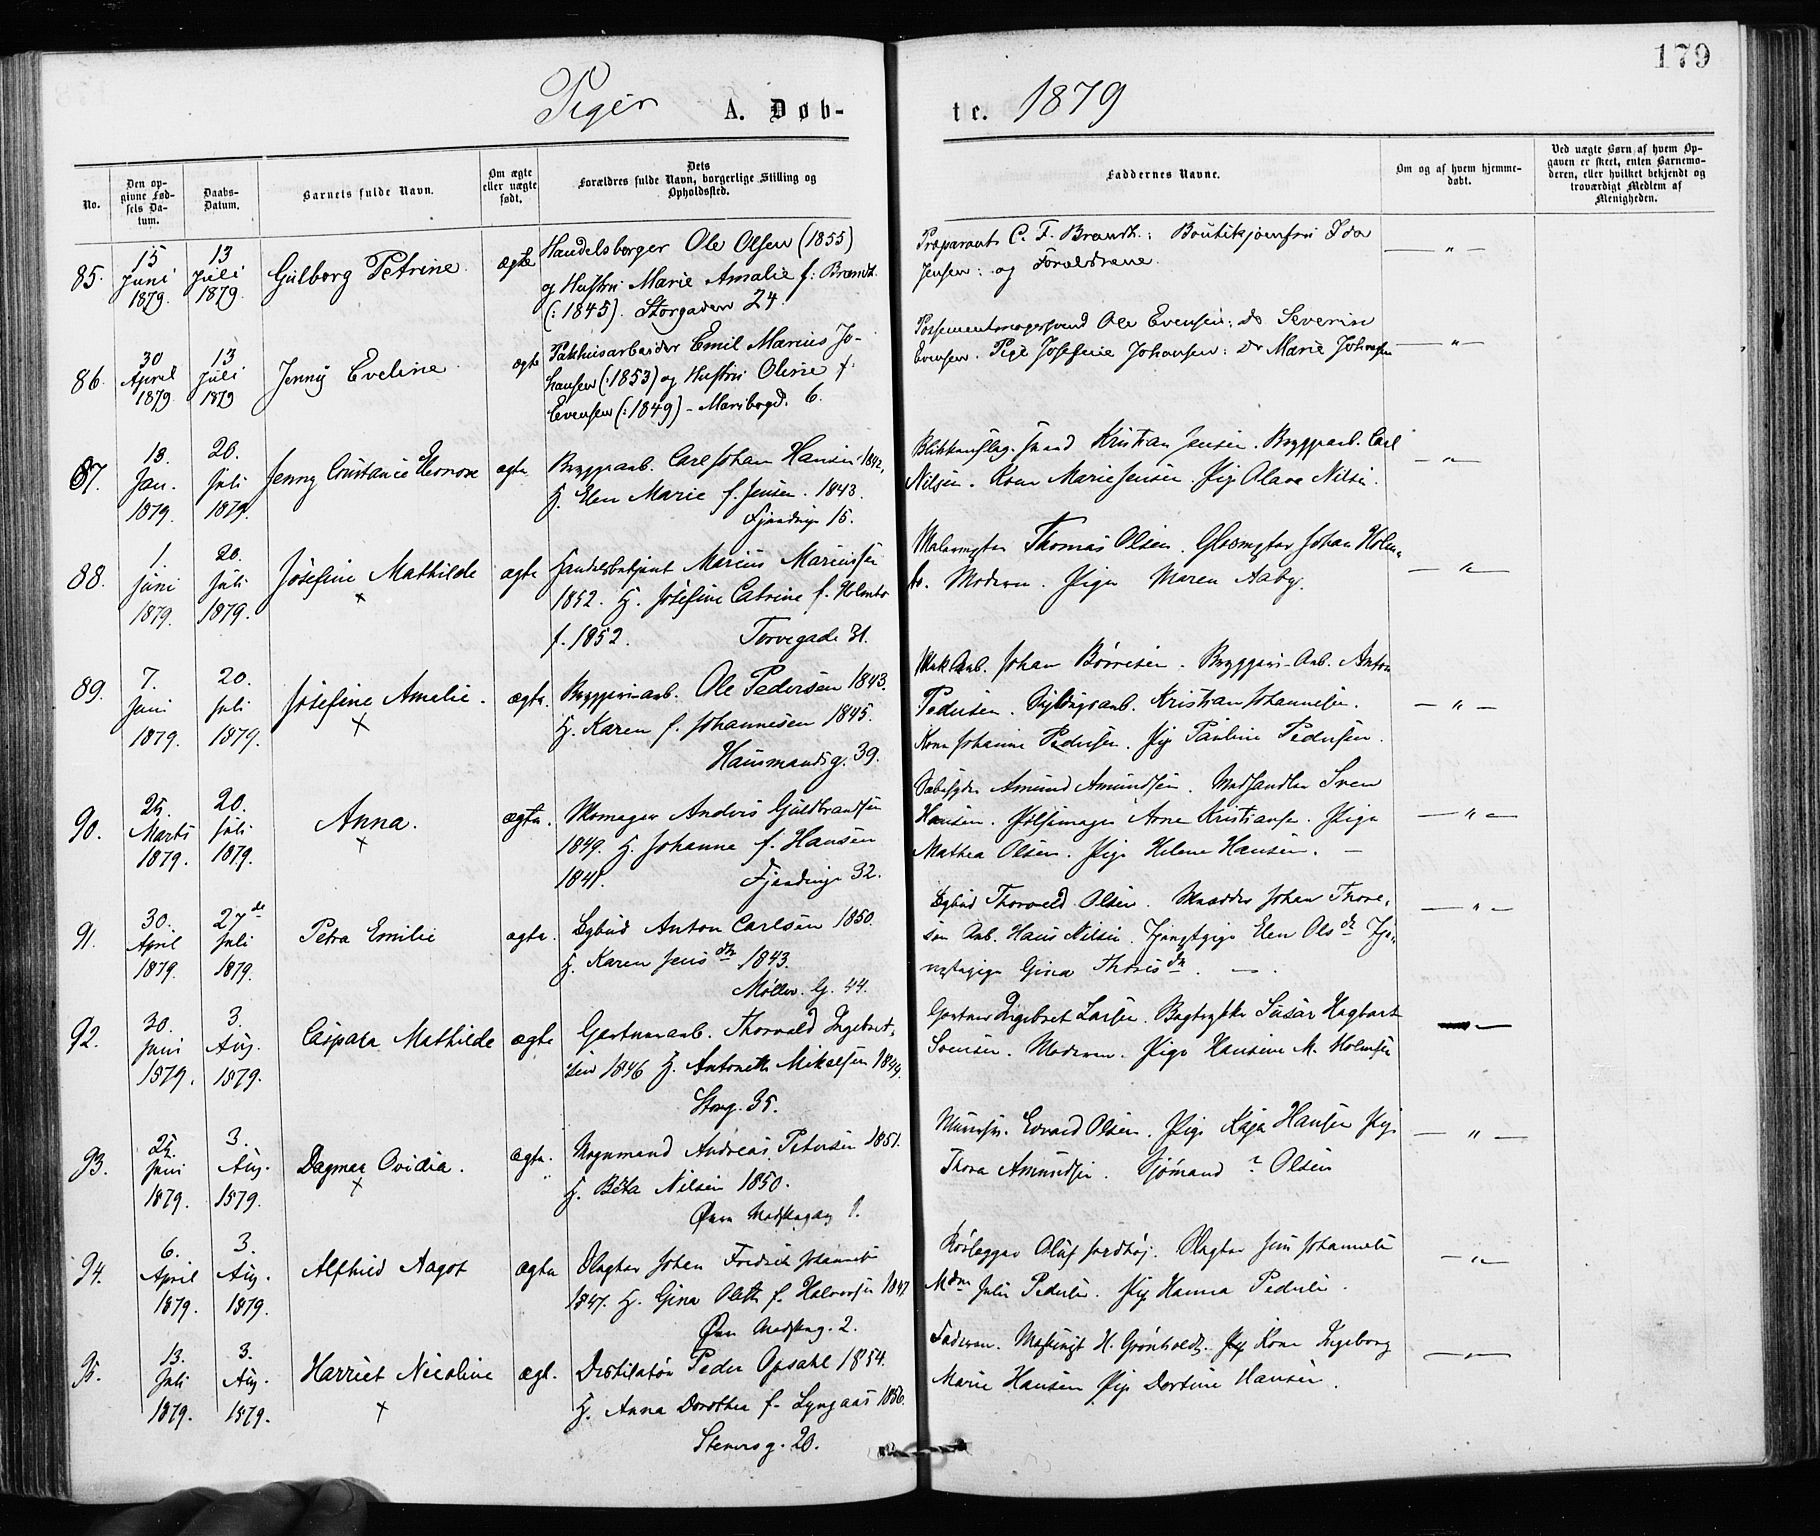 179
Piger A. Døb-
te. 1879
No.
Den op-
givne Fød-
sels Da-
tum.
Daabs-
Datum.
Barnets fulde Navn.
Om ægte
eller uægte
født.
Dets
Forældres fulde Navn, borgerlige Stilling og
Opholdssted.
Faddernes Navne.
Om og af hvem hjemme-
døbt.
Ved uægte Børn af hvem Op-
gaven er skeet, enten Barnemo-
deren, eller hvilket bekjendt og
troværdigt Medlem af
Menigheden.
85.
15
Juni
1879.
13
Juli
1879.
Gulborg Petrine.
ægte
Handelsborger Ole Olsen (1855)
og Hustru Marie Amalie f: Brandt
(:1845). Storgaden 24.
Præparant C. F. Brandt: Boutikjomfru Ida
Jensen: og Forældrene.
— „ —
86.
30
April
1879.
13
Juli
1879
Jenny Eveline.
ægte
Pakhusarbeider Emil Marius Jo-
hansen (:1853) og Hustru Oline f.
Evensen (:1849) - Maribogd. 6.
Possementmagersvend Ole Evensen: do Severin
Evensen. Pige Josefine Johansen: Do Marie Johansen
— „ —
87.
13.
Jan.
1879.
20.
Juli
1879.
Jenny Constance Elenore
ægte
Bryggearb. Carl Johan Hansen 1842,
H. Elen Marie f. Jensen. 1843.
15.
Kristian Jensen. Bryggearb. Carl
Nilsen. Kone Marie Jensen. Pige Olava Nilsen.
— „ —
88.
1.
Juni
1879.
20.
Juli
1879.
Josefine Mathilde
×
ægte
Handelsbetjent Marius Mariussen
1852. H. Josefine Catrine f. Holmbo
f. 1852. Torvegade 31.
Malermester Thomas Olsen. Glasmgter Johan Holm-
bo. Moderen. Pige Maren Aaby.
— „ —
89.
7.
Juni
1879.
20.
Juli
1879.
Josefine Amalie.
×
ægte.
Bryggeri-arb. Ole Pedersen 1843.
H. Karen f. Johannesen 1845.
Hausmandsg. 39.
Johan Børresen. Bryggeri-Arb. Anton
Pedersen. Kristian Johannesen.
Kone Johanne Pedersen. Pige Pauline Pedersen.
— „ —
90.
25.
Marts
1879.
20.
Juli
1879.
Anna.
×
ægte.
Skomager Anders Guldbrandsen
1849. H. Johanne f. Hansen
1841. 32.
Sæbesyder Amund Amundsen. Madhandler Sven
Hansen. Pølsemager Arne Kristiansen. Pige
Mathea Olsen. Pige Helene Hansen. —
— „ —
91.
30.
April
1879.
27de
Juli
1879.
Petra Emilie
ægte.
Bybud Anton Carlsen 1850.
H. Karen Jensdtr 1843.
Møller. G. 44.
Bybud Thorvald Olsen. Skrædder Johan Thore-
sen Arb. Hans Nilsen. Tjenestpige Elen Olsdtr Tje-
nestepige Gina Thorisdtr. —.
— „ —
92.
30.
Juni
1879.
3.
Aug.
1879.
Caspara Mathilde
ægte
Gartnerarb. Thorvald Ingebret-
sen 1846 H. Antonette Mikelsen 1849.
Storg. 35.
Gartner Ingebret Larsen. Bogtrykker Hagbart
Svensen. Moderen. Pige Hansine M. Holmsen
—
93.
25.
Juni
1879.
3.
Aug.
1879.
Dagmar Ovidia.
×
ægte.
Vognmand Andreas Petersen 1851.
H. Beta Nilsen 1850.
Øvre 1.
Edvard Olsen. Pige Kaja Hansen Pige
Thora Amundsen. Sjømand ? Olsen
— „ —
94.
6.
April
1879.
3.
Aug.
1879.
Alfhild Nagot
ægte
Slagter Johan Fredrik Johannesen
1847. H. Gina Olette f. Halvorsen 1847
Øvre 2.
Rørlegger Oluf Slagter Johannesen
Mdm Julie Pedersen. Pige Hanna Pedersen.
— „ —
95.
13.
Juli
1879.
3.
Aug.
1879.
Harriet Nicoline
×
ægt.
Destilatør Peder Opsahl 1854.
H. Anna Dorothea f. Lyngaas 1856.
Stenersg. 20.
Faderen. H. Grønholdt. Kone Ingeborg
Marie Hansen Pige Dortine Hansen.
— „ —